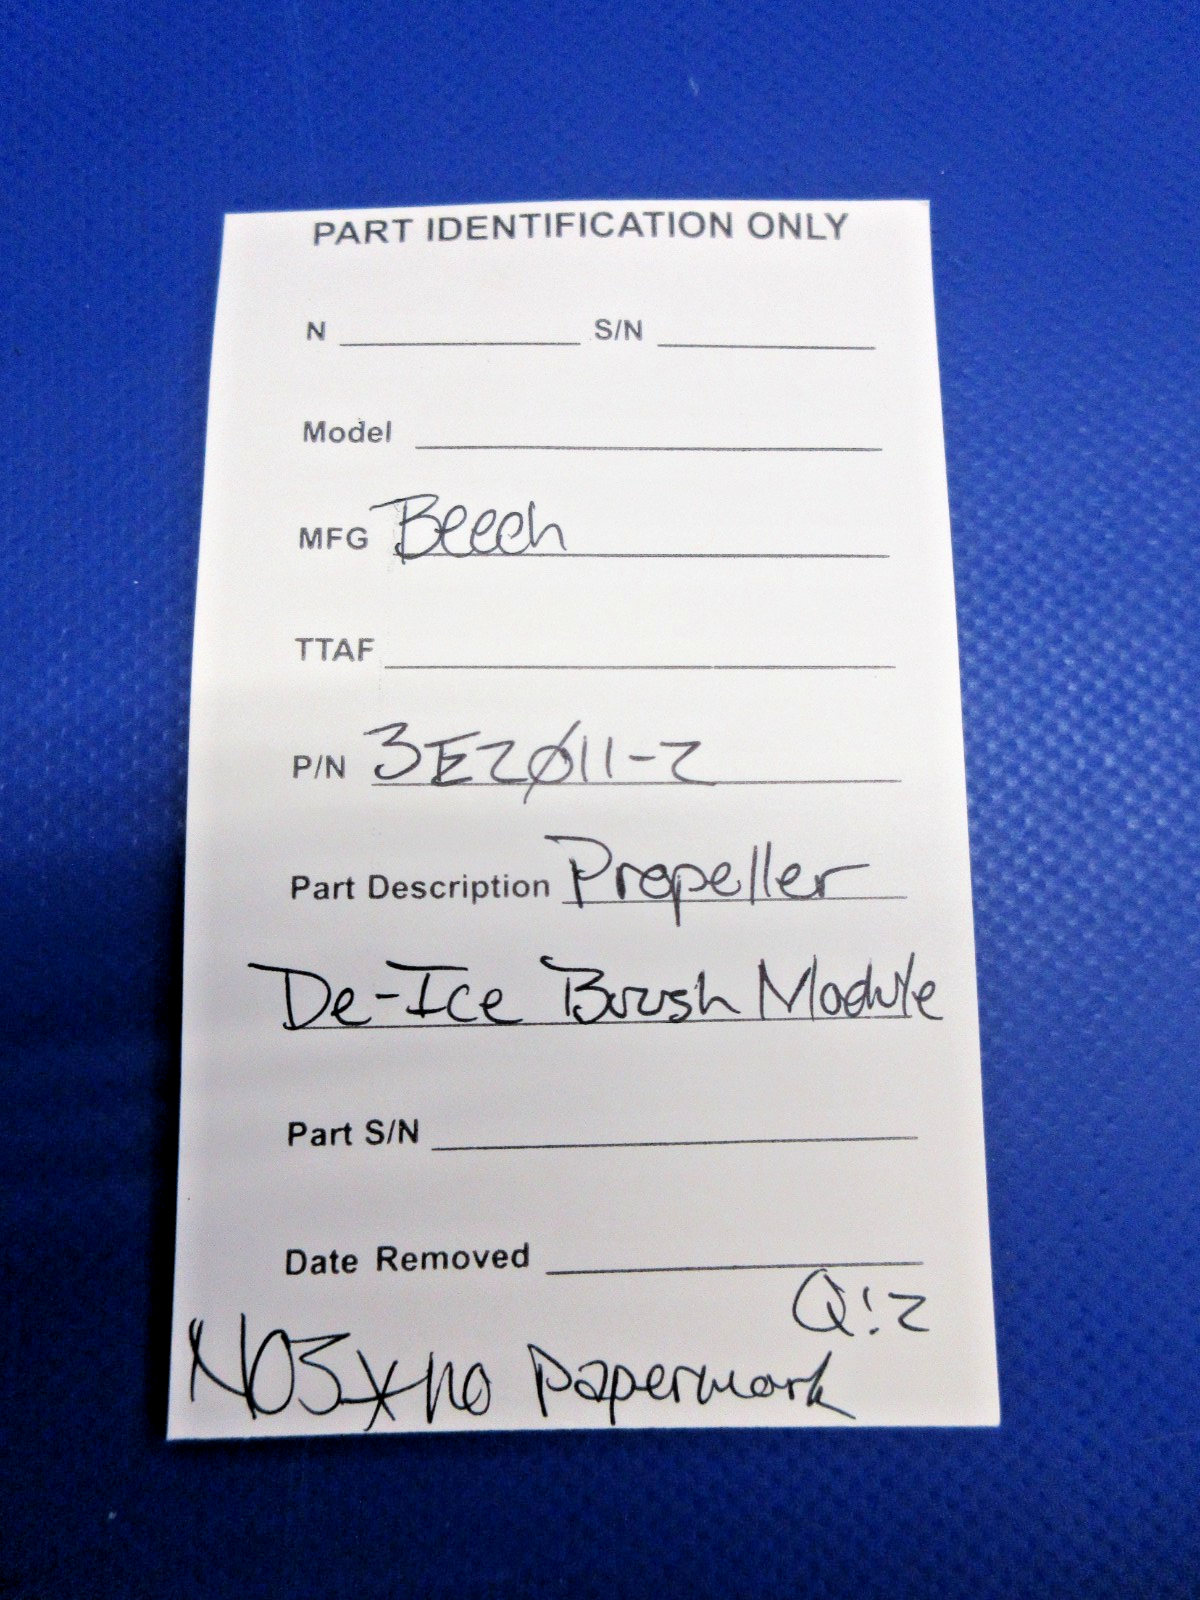 PART IDENTIFICATION ONLY
N S/N
Model
MFG Beech
TTAF
P/N 3E2011-2
Part Description Propeller
De-Ice Brush Module
Part S/N
Date Removed
Q:2
NOS* no paperwork